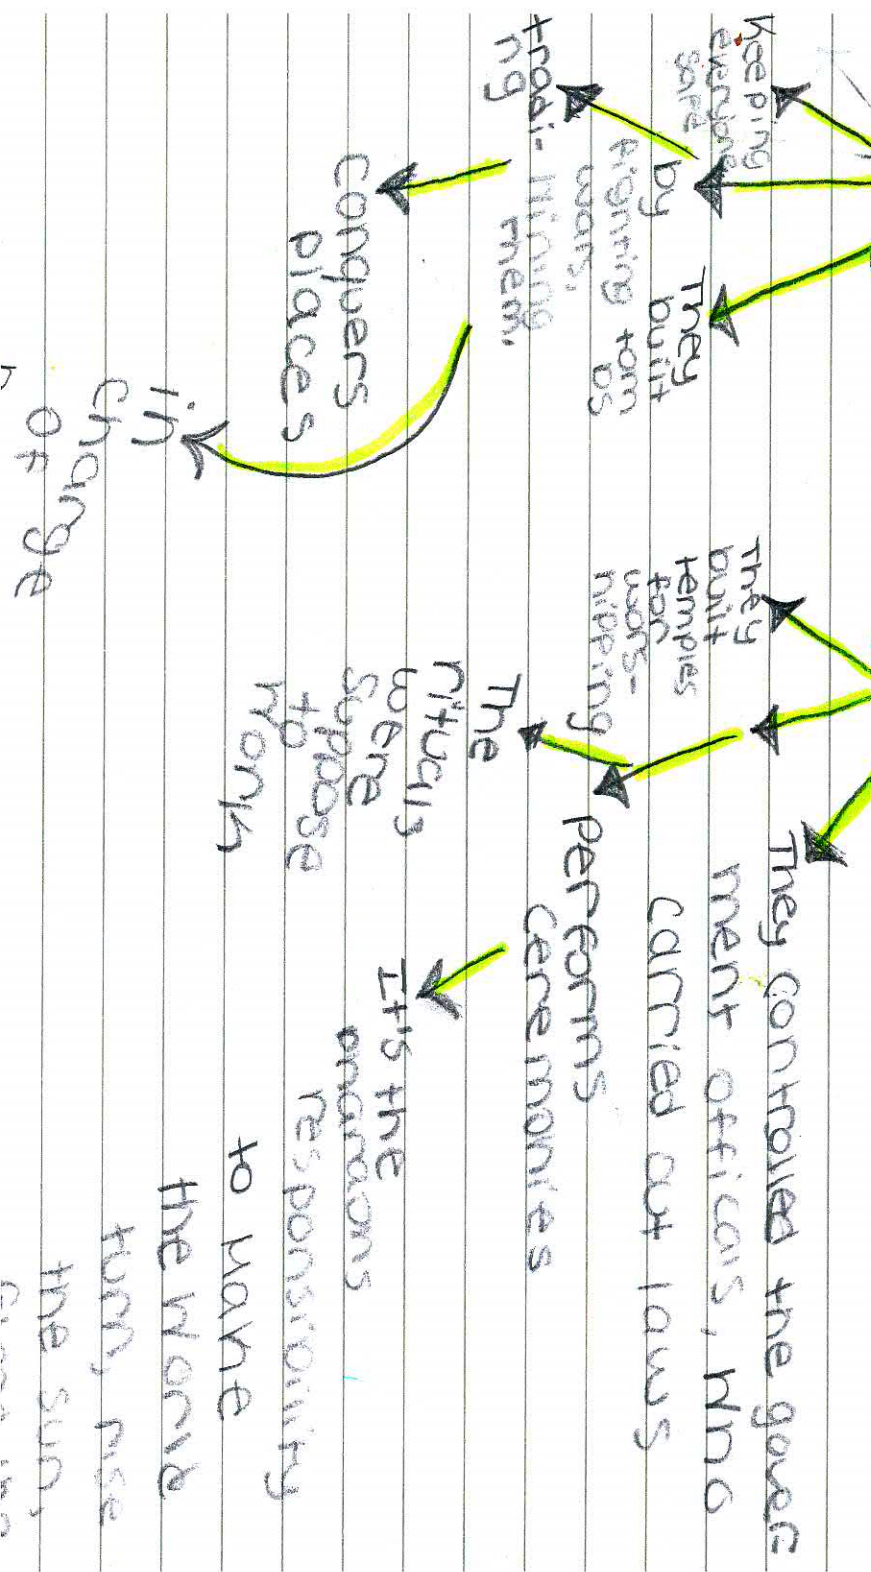 Keeping
everyone
safe
by
fighting
wars,
They
built
tombs
tradi-
ng
Mining
them.
conquers
places
in
charge
of
They
built
temples
for
wors-
hipping
The
rituals
were
suppose
to
work
They controlled the govern
ment officals, who
carried out laws
Performs
ceremonies
It's the
pharaohs
responsibility
to have
the world
turn, rise
the sun,